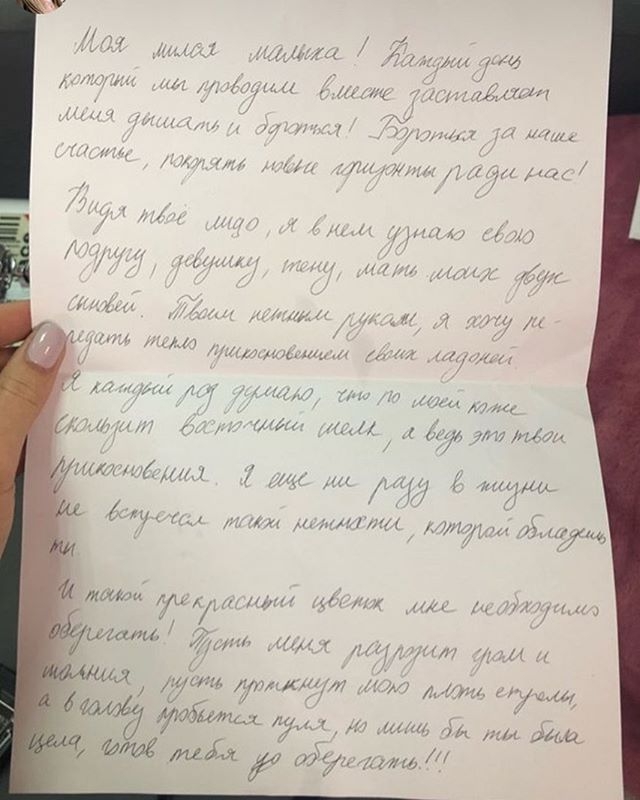 Моя милая малыха! Каждый день
который мы проводим вместе заставляет
меня дышать и бороться! Бороться за наше
счастье, покорять новые горизонты ради нас!
Видя твоё лицо, я в нем узнаю свою
подругу, девушку, жену, мать моих двух
сыновей. Твоим нежным рукам, я хочу пе-
редать тепло прикосновением своих ладоней.
Я каждый раз думаю, что по моей коже
скользит восточный шелк, а ведь это твои
прикосновения. Я еще ни разу в жизни
не встречал такой нежности, которой обладаешь
ты.
И такой прекрасный цветок мне необходимо
оберегать! Пусть меня разразит гром и
молния, пусть проткнут мою плоть стрелы,
а в голову пробьется пуля, но лишь бы ты была
цела, готов тебя оберегать!!!